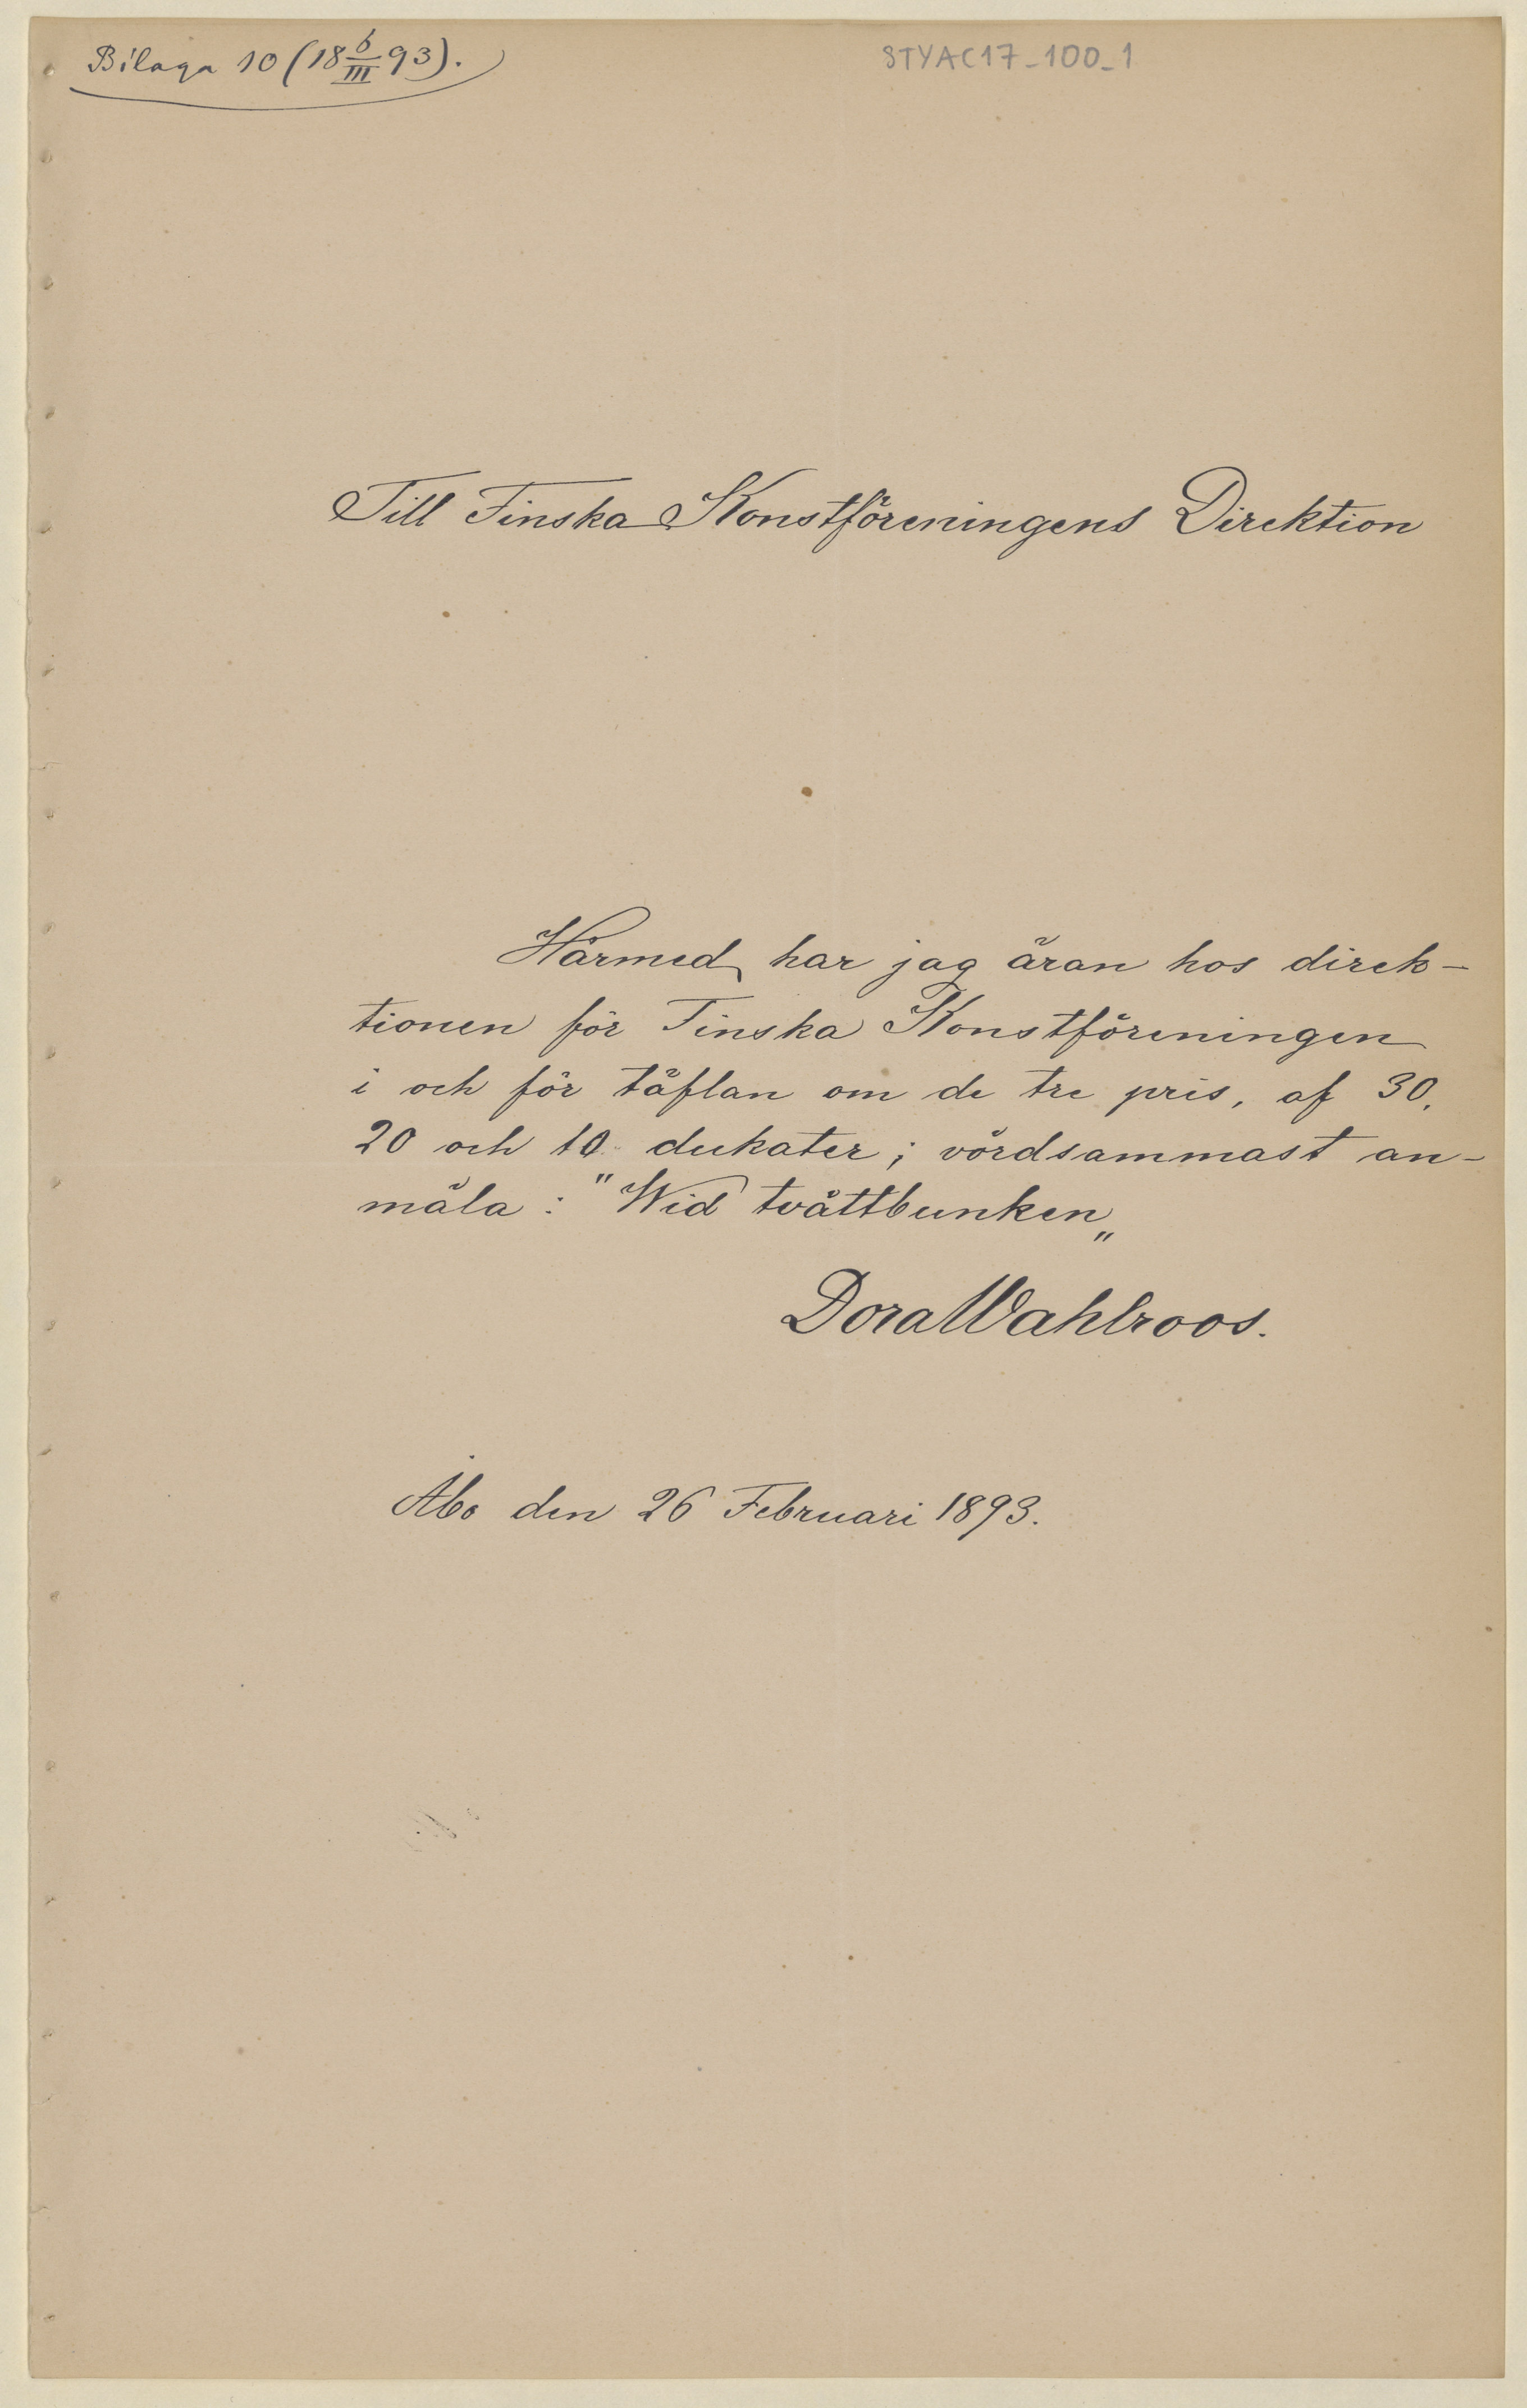 Bilaga 10 (18 6/III 93).
STYAC17_100_1
Till Finska Konstföreningens Direktion
Härmed har jag äran hos direk-
tionen för Finska Konstföreningen
i och för täflan om de tre pris, af 30,
20 och 10 dukater; vördsammast an-
mäla: "Wid tvättbunken„
Dora Wahlroos.
Åbo den 26 Februari 1893.